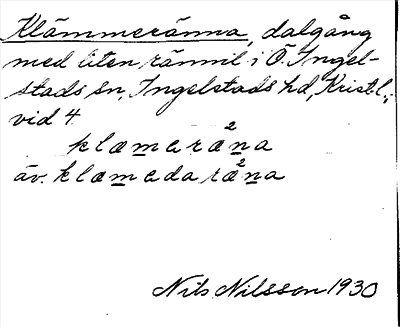 Klämmeränna, dalgång
med liten rännil i Ö. Ingel-
stads sn, Ingelstads hd, Krist.l.,
vid 4.
klæmeræ²na
äv. klæmedaræ²na
Nils Nilsson 1930